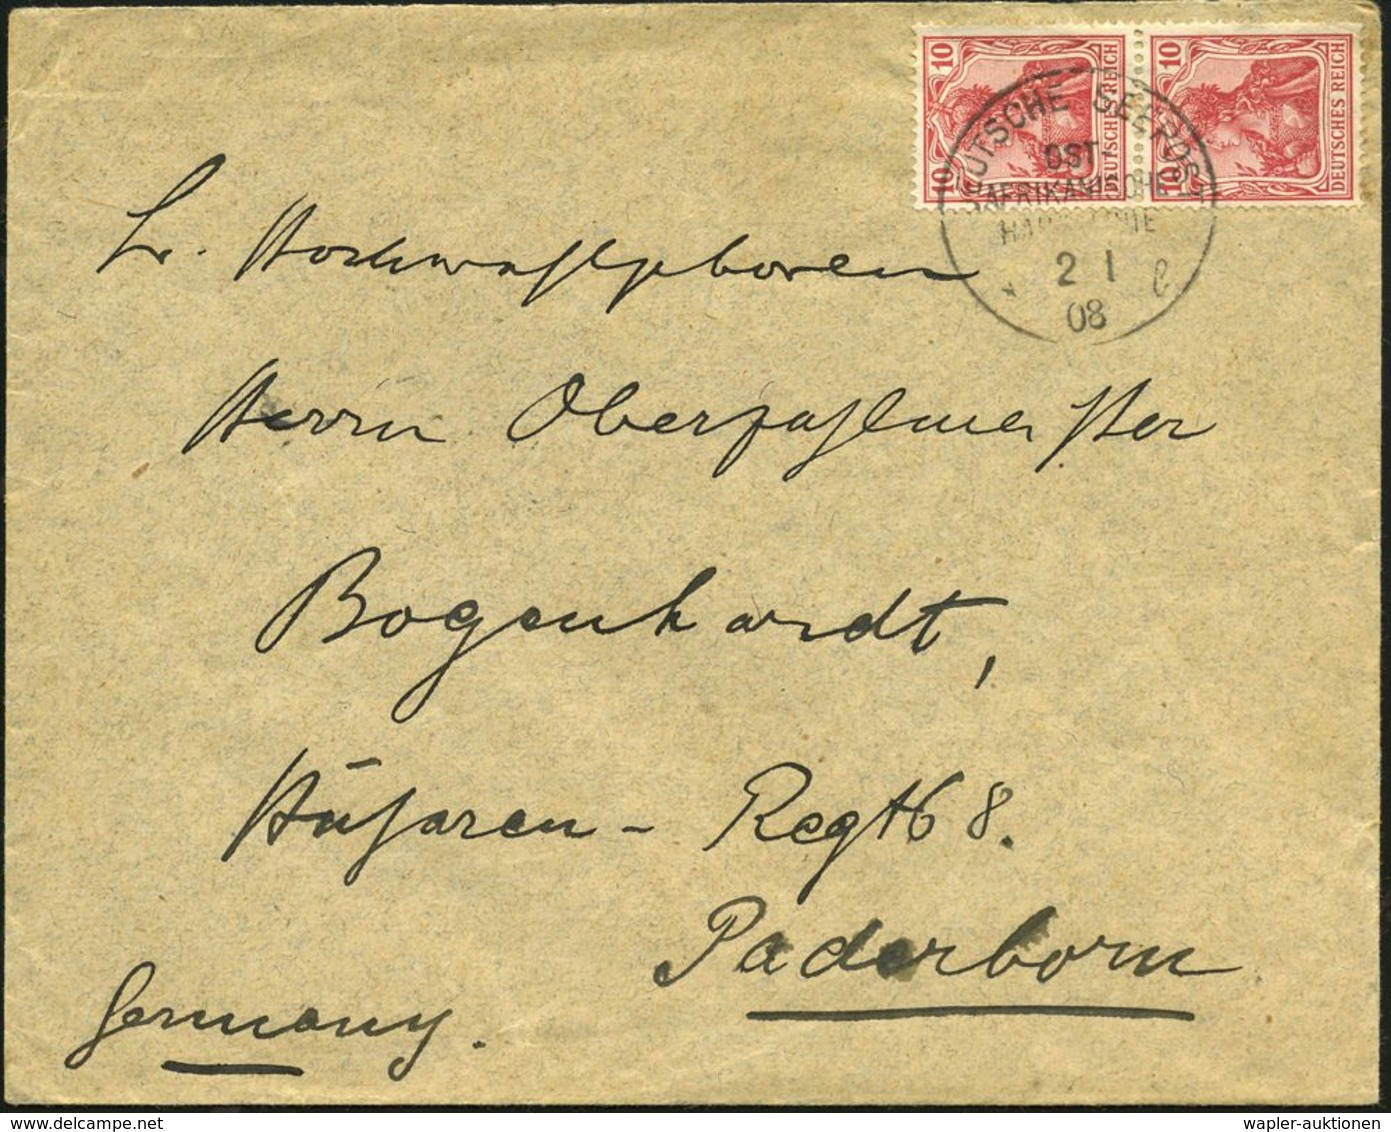 10 DEUTSCHES REICH 10
10 DEUTSCHES REICH 10
DEUTSCHE SEEPOST
OST-
AFRIKANISCHE
HAUPTLINIE
* 2 1 b
08
Sr. Hochwohlgeboren
Herrn Oberzahlmeister
Bogenhardt,
Husaren - Regt 8.
Paderborn
Germany.
wapler-auktionen